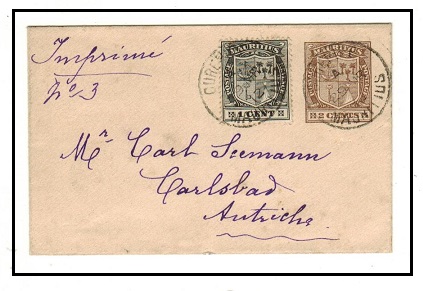 Imprimé
No 3
MAURITIUS
POSTAGE
1 CENT
MAURITIUS
POSTAGE
2 CENTS
Mr Carl Seemann
Carlsbad
Autriche